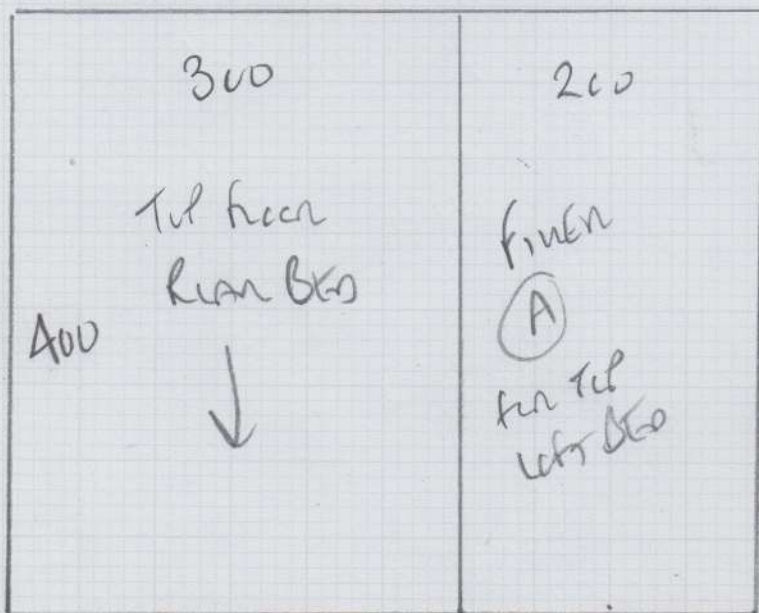 300
200
TOP FLOOR
REAR BED
400
FILLER
A
FOR TOP
LOFT BED